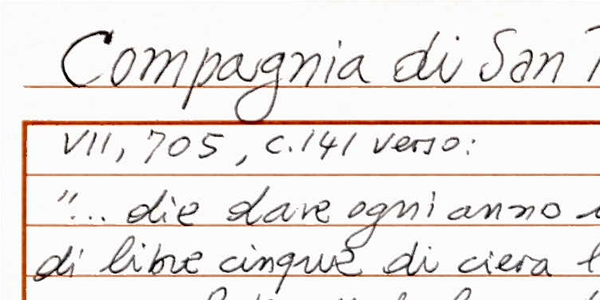 Compagnia di San
VII, 705, c.141 verso:
"... die dare ogni anno
di libre cinque di ciera